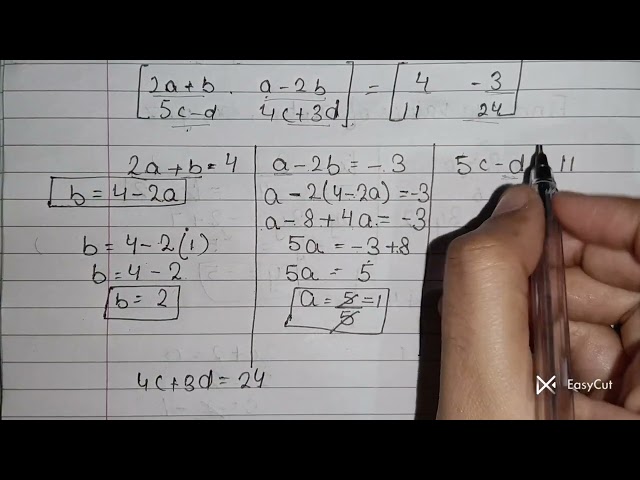 [2a+b a-2b] = [4 -3]
[5c-d 4c+3d] [11 24]
2a+b=4
b=4-2a
b=4-2(1)
b=4-2
b=2
4c+3d=24
a-2b=-3
a-2(4-2a)=-3
a-8+4a=-3
5a=-3+8
5a=5
a=5/5=1
5c-d 11
EasyCut